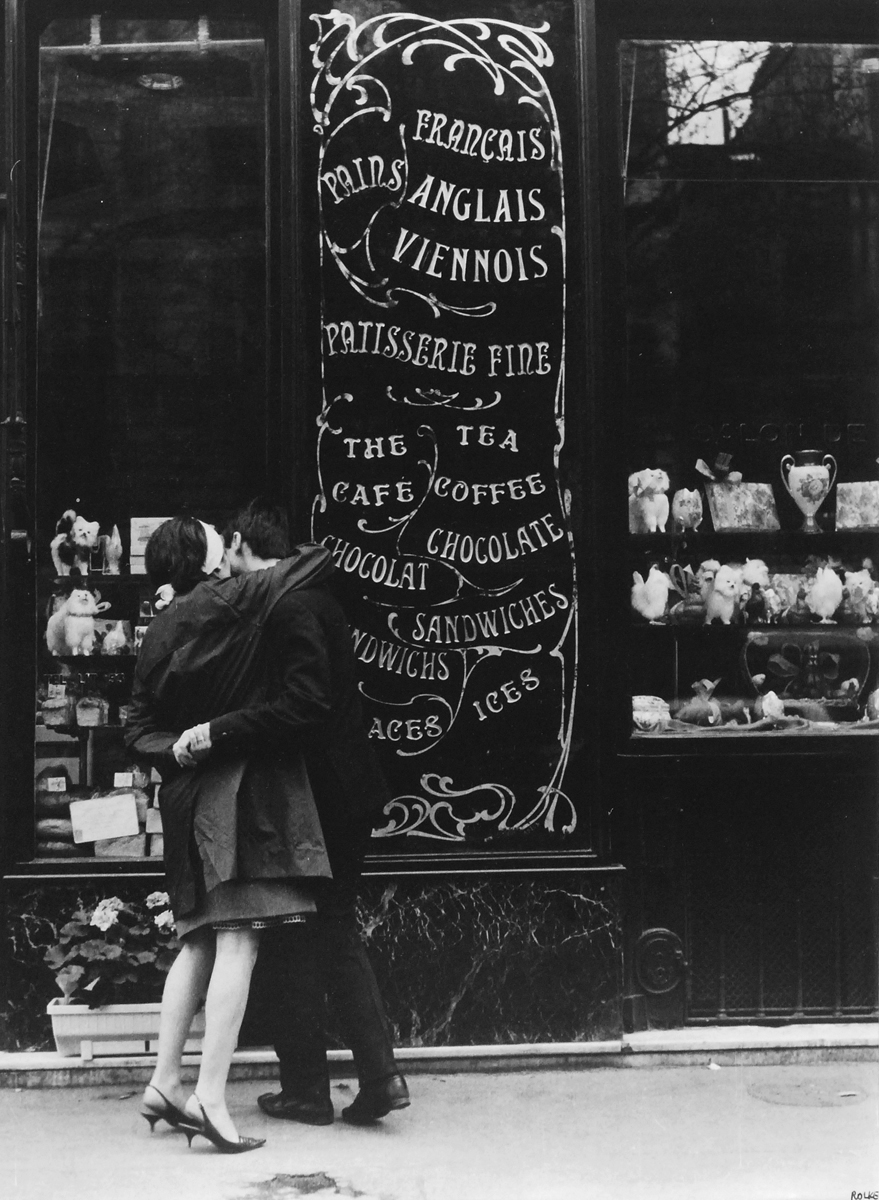 PAINS
FRANÇAIS
ANGLAIS
VIENNOIS
PATISSERIE FINE
THE TEA
CAFÉ COFFEE
CHOCOLAT CHOCOLATE
NDWICHS SANDWICHES
ACES ICES
SALON DE